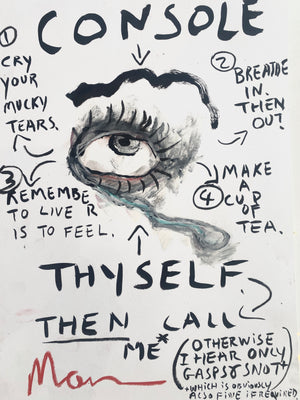 CONSOLE
①
CRY
YOUR
MUCKY
TEARS.
②
BREATHE
IN.
THEN
OUT.
③
REMEMBE
TO LIVE R
IS TO FEEL.
④
MAKE
A
CUP
OF
TEA.
THYSELF
THEN CALL
ME*
(OTHERWISE
I HEAR ONLY
GASPS & SNOT*)
*WHICH IS OBVIOUSLY
ALSO FINE IF REQUIRED